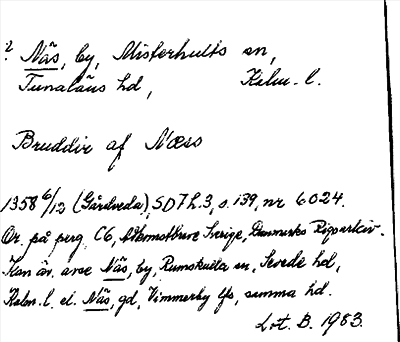 ? Näs, by, Misterhults sn,
Tunaläns hd, Kalm. l.
Bruddir af Næss
1358 6/12 (Gårdveda), SD 7 h. 3, s. 139, nr 6024.
Or. på perg. C6, Sverige, Danmarks Riksarkiv.
Kan äv. avse Näs, by, Rumskulla sn, Sevede hd,
Kalm. l. el. Näs, gd, Vimmerby lfs, samma hd.
L.t. B. 1983.